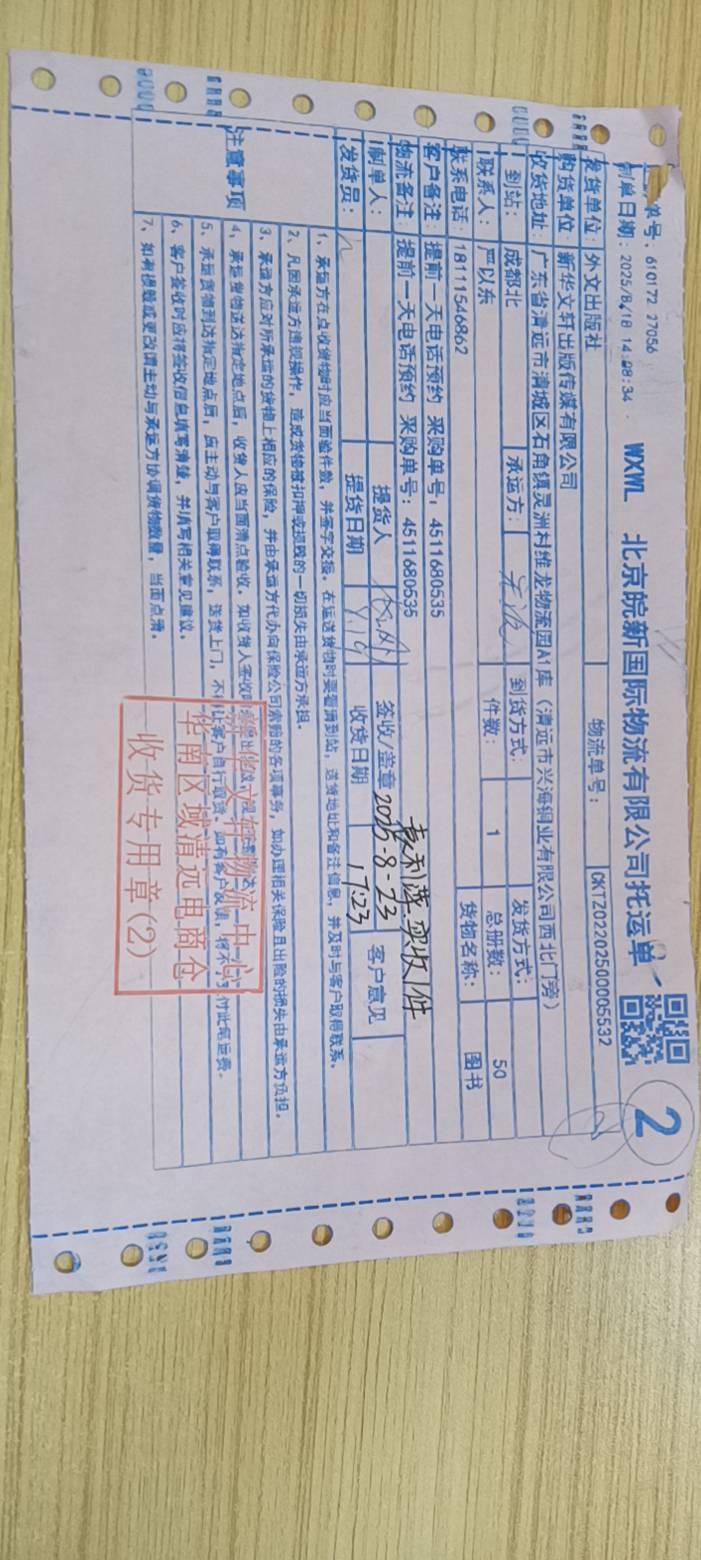 单号：610172 27056
制单日期：2025/8/18 14:08:34
WXWL 北京皖新国际物流有限公司托运单
2
发货单位：外文出版社
物流单号：CKTZ02202500005532
购货单位：新华文轩出版传媒有限公司
收货地址：广东省清远市清城区石角镇灵洲村维龙物流园A1库（清远市兴海铜业有限公司西北门旁）
到站：成都北 承运方： 到货方式： 发货方式：
联系人：严以东 件数：1 总册数：50
联系电话：18111546862 货物名称：图书
客户备注：提前一天电话预约 采购单号：4511680535
物流备注：提前一天电话预约 采购单号：4511680535
实收1件
制单人： 提货人 签收/盖章 2025-8-23 客户意见
发货员： 提货日期 收货日期 17:23
注意事项
1、承运方在点收货物时应当面验件数，并签字交接。在运送货物时要看清到站，送货地址和备注信息，并及时与客户取得联系。
2、凡因承运方违规操作，造成货物被扣押或损毁的一切损失由承运方承担。
3、承运方应对所承运的货物上相应的保险，并由承运方代办向保险公司索赔的各项事务，如办理相关保险且出险的损失由承运方负担。
4、承运货物送达指定地点后，收货人应当面清点验收。
5、承运货物到达指定地点后，应主动与客户取得联系，送货上门，不得让客户自行取货。如有客户反馈，将不予支付此笔运费。
6、客户签收时应将签收信息填写清楚，并填写相关意见建议。
7、如有损毁或更改请主动与承运方协调货物数量，当面点清。
新华文轩物流中心
华南区域清远电商仓
收货专用章(2)